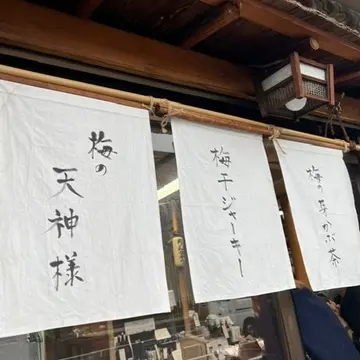 梅の
天神様
梅干ジャーキー
梅の芽かぶ茶